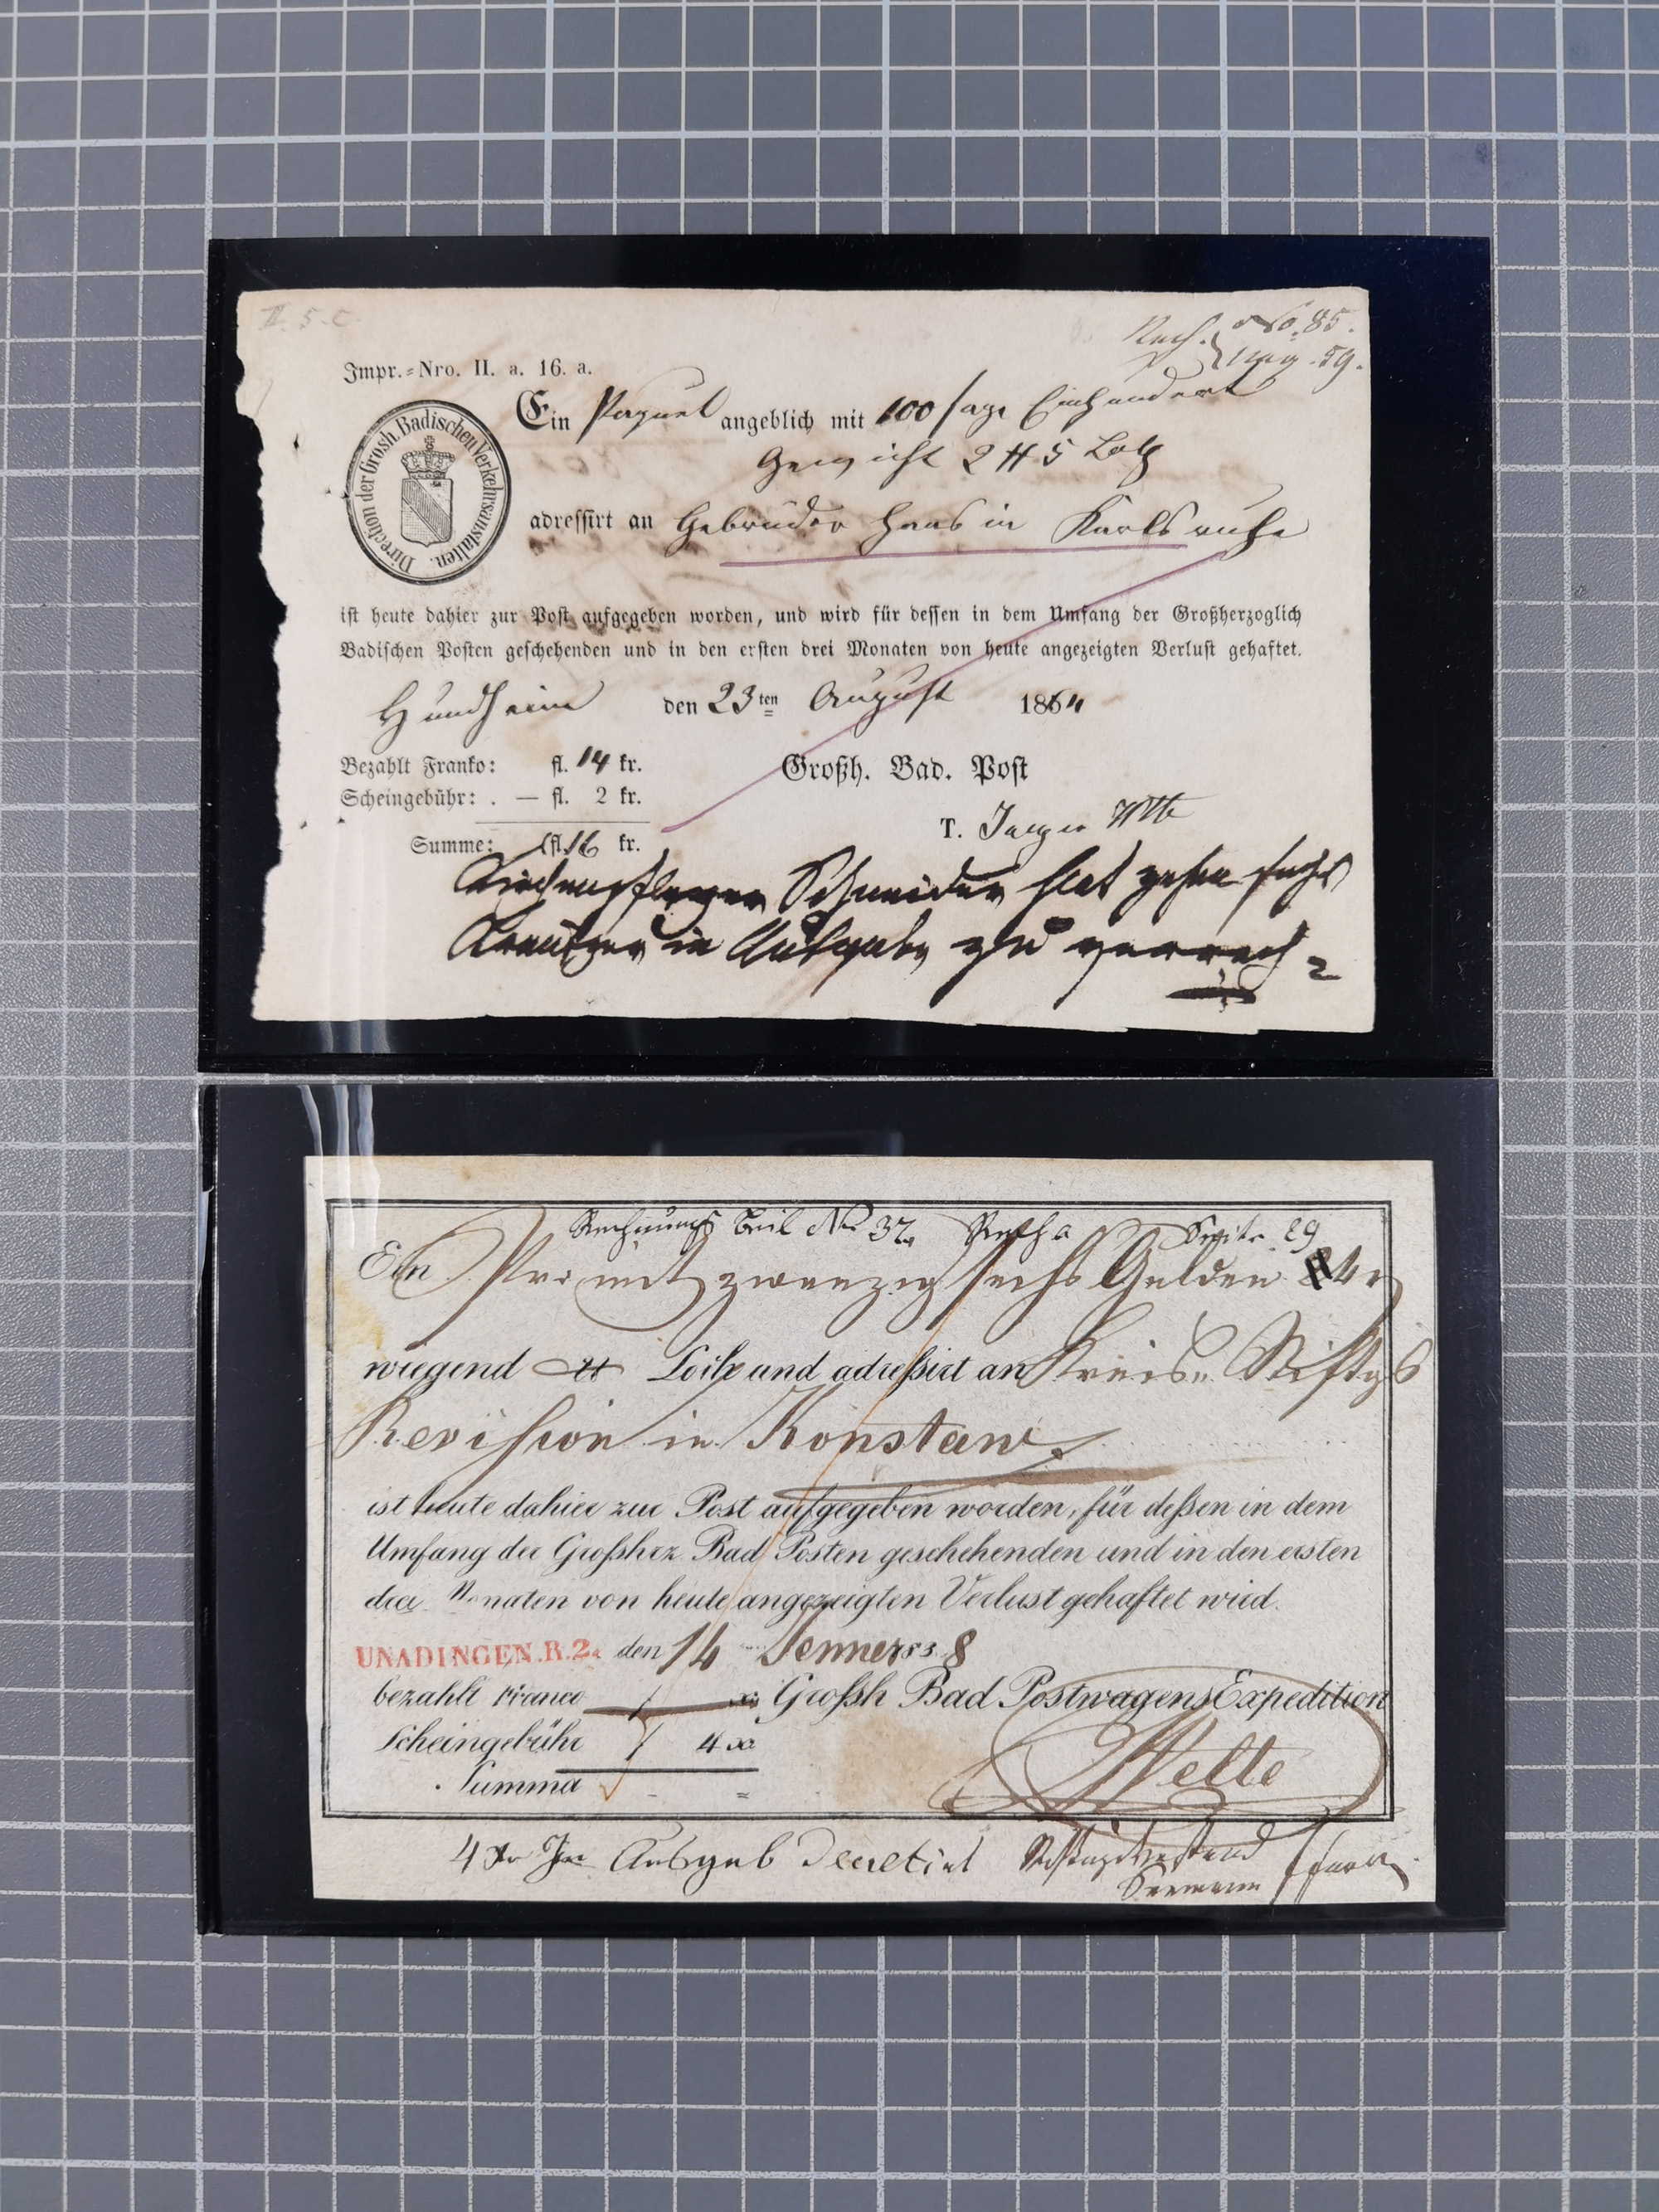 II. 5. C.
Rech. No. 85.
59.
Impr.=Nro. II. a. 16. a.
Direction der Grosh. Badischen Verkehrsanstalten.
Ein Paquet angeblich mit 100 sage Einhundert
Gewicht 2 ℔ 5 Loth
adressirt an Gebrüder Haas in Karlsruhe
ist heute dahier zur Post aufgegeben worden, und wird für dessen in dem Umfang der Großherzoglich
Badischen Posten geschehenden und in den ersten drei Monaten von heute angezeigten Verlust gehaftet.
Hundheim den 23ten August 186
Bezahlt Franko: fl. 14 kr.
Großh. Bad. Post
Scheingebühr: . — fl. 2 kr.
Summe: fl. 16 kr.
T.
Kirchenpfleger Schneider hat zehen sechs
Kreutzer in Ausgabe zu verrech=
Rechnungs Beil No 32. Seite 29
Ein mit zwanzig sechs Gulden
wiegend ℔ Loth und adreßirt an Kreis= Stiftgs
Revision in Konstanz
ist heute dahier zur Post aufgegeben worden, für deßen in dem
Umfang der Großherz Bad Posten geschehenden und in den ersten
drei Monaten von heute angezeigten Verlust gehaftet wird.
UNADINGEN.R.2. den 14 Jenner 838
bezahlt Franco xr Großh Bad Postwagens Expedition
Scheingebühr f 4 xr
Welte
Summa
4 xr In Ausgab decretirt